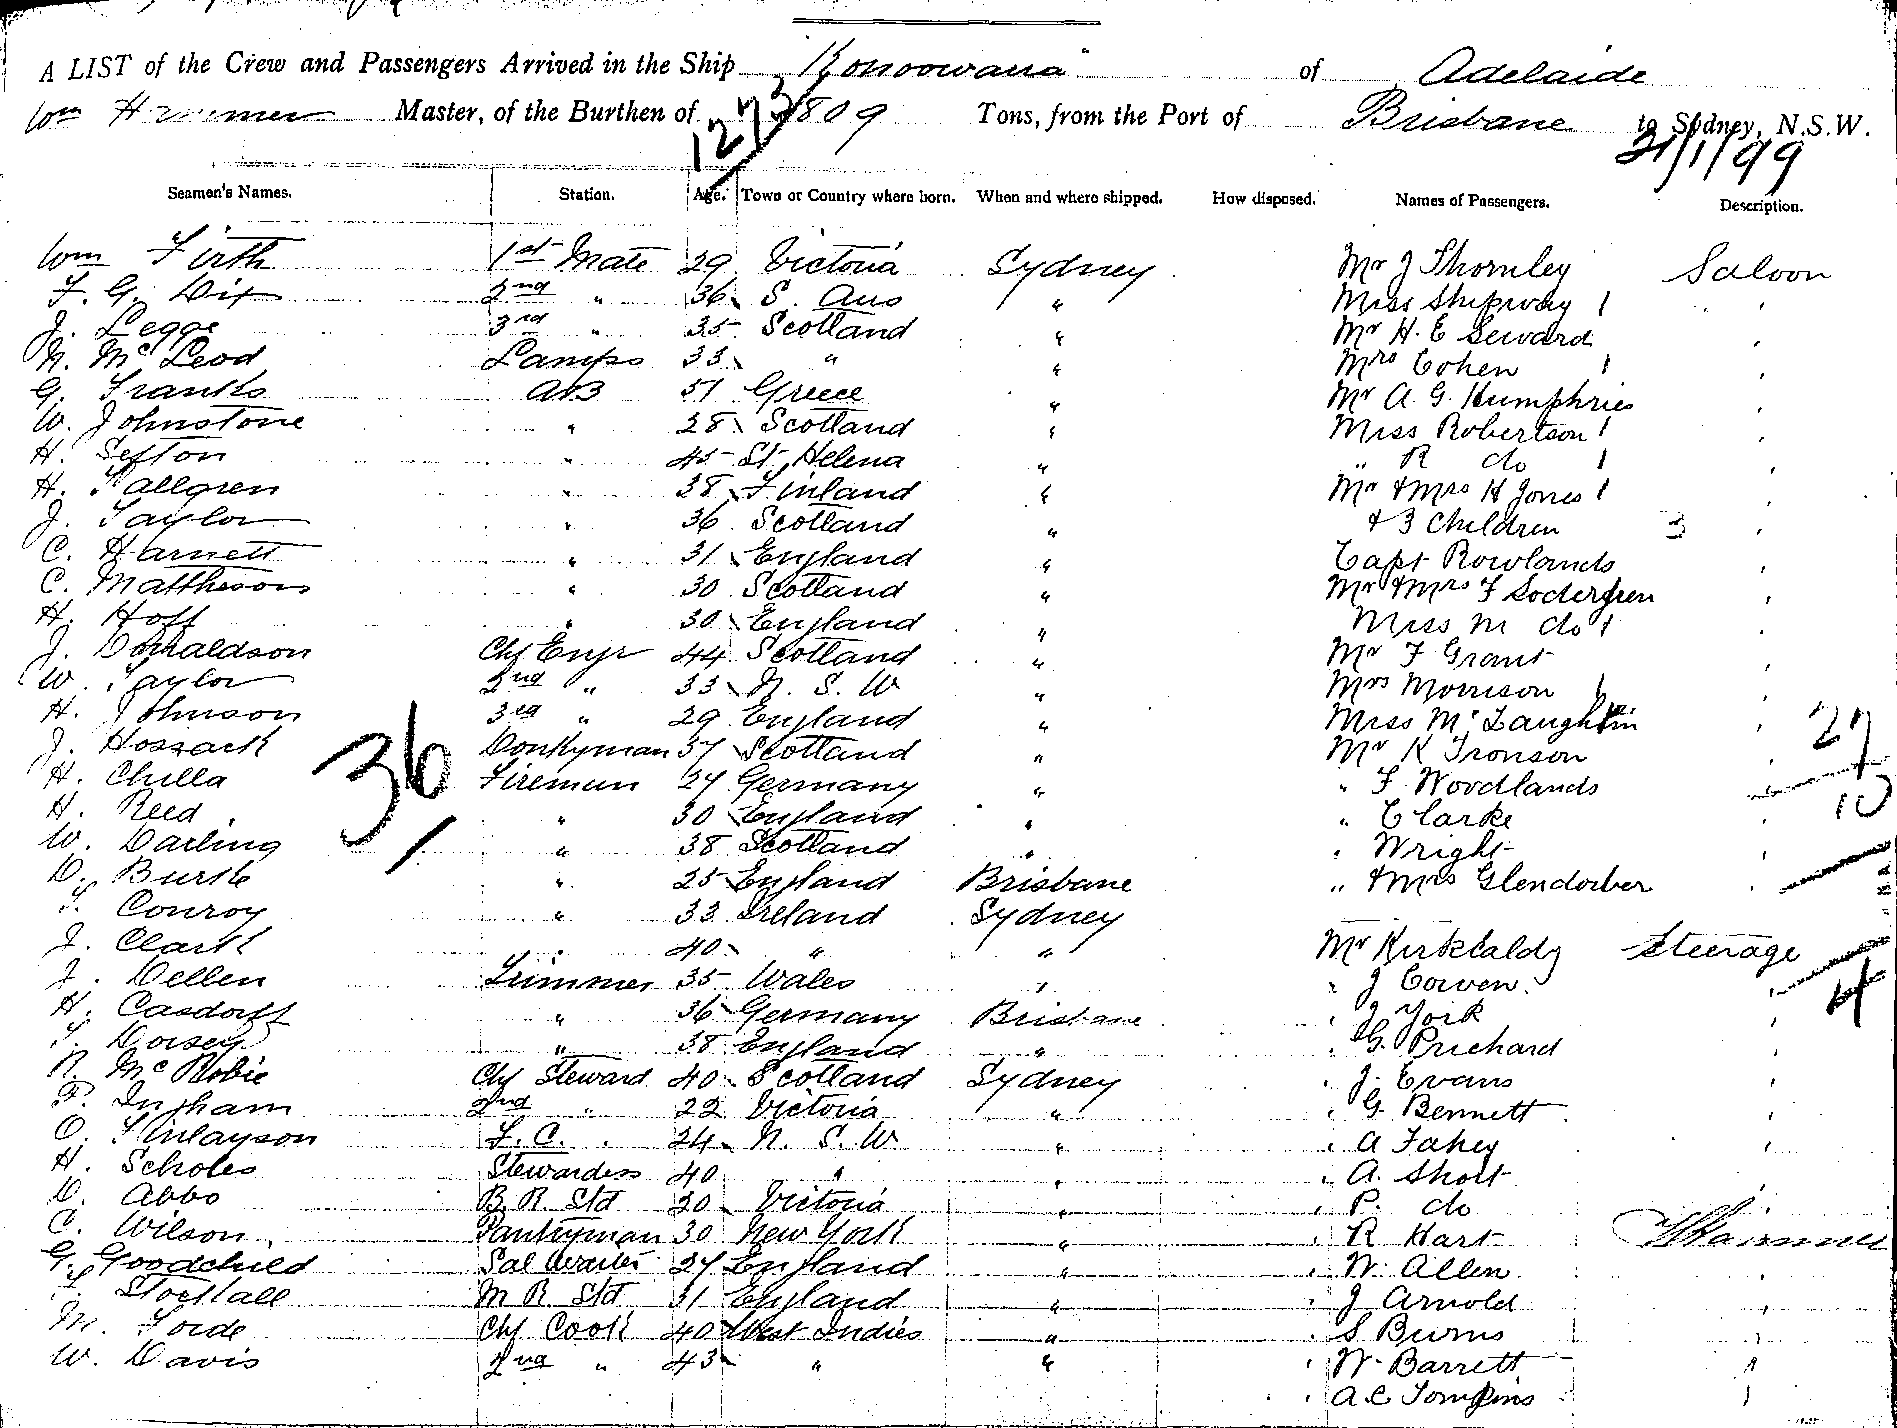 A LIST of the Crew and Passengers Arrived in the Ship Konoowarra of Adelaide
Wm Master, of the Burthen of 1273/1809 Tons, from the Port of Brisbane to Sydney, N.S.W.
31/1/99
Seamen's Names. Station. Age. Town or Country where born. When and where shipped. How disposed. Names of Passengers. Description.
Wm Firth 1st Mate 29 Victoria Sydney Mr J Thornley Saloon
F. G. Dix 2nd " 36 S. Aus " Miss Shipway 1 "
J. Legge 3rd " 35 Scotland " Mr H. E Seward "
N. McLeod Lamps 33 " " Mrs Cohen 1 "
G. Franks AB 51 Greece " Mr A. G. Humphries "
W. Johnstone " 28 Scotland " Miss Robertson 1 "
H. Sefton " 45 St. Helena " " R do 1 "
H. Sallgren " 38 Finland " Mr & Mrs H Jones 1 "
J. Taylor " 36 Scotland " & 3 Children 3 "
C. Harnett " 31 England " Capt Rowlands "
C. Matheson " 30 Scotland " Mr & Mrs F Sodergren "
H. Hoff " 30 England " Miss M do 1
J. Donaldson Chf Engr 44 Scotland " Mr F Grant "
W. Taylor 2nd " 33 N. S. W " Mrs Morrison 1 "
H. Johnson 3rd " 29 England " Miss McLaughlin " 27
J. Hossack Donkyman 37 Scotland " Mr K Tronson "
36
H. Chilla Fireman 27 Germany " " F Woodlands "
H. Reed " 30 England " " C Clarke " 10
W. Darling " 38 Scotland " " Wright "
D. Burke " 25 England Brisbane " & Mrs Glendorber "
T. Conroy " 33 Ireland Sydney
J. Clark " 40 " " Mr Kirkcaldy Steerage
J. Dellen Trimmer 35 Wales " " J Cowen " 4
H. Casdorff " 36 Germany Brisbane " J York "
T. Dorsey " 38 England " " G. Prichard "
R. McRobie Chf Steward 40 Scotland Sydney " J. Evans "
F. Ingham 2nd " 22 Victoria " " G. Bennett "
O. Finlayson F. C. 24 N. S. W " " A Fahey "
H. Scholes Stewardess 40 " " " A. Short "
D. Abbo B. R. Std 20 Victoria " " P. do "
C. Wilson Pantryman 30 New York " " R Hart
G. Goodchild Sal Waiter 27 England " " W. Allen "
T. Stockall M R Std 31 England " " J Arnold "
M. Forde Chf Cook 40 West Indies " " S Burns "
W. Davis 2nd " 43 " " " W. Barrett "
" A. C Tompkins "